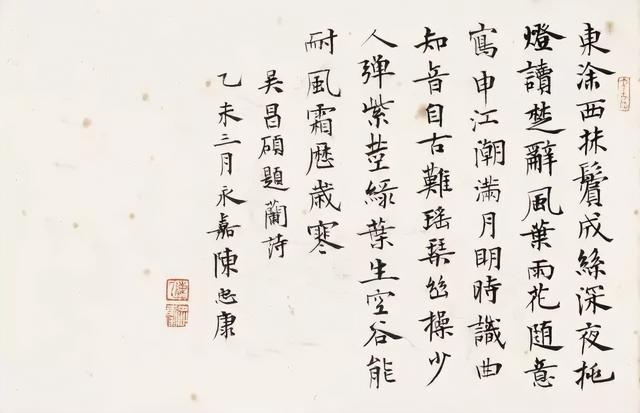 東涂西抹鬢成絲深夜挑
燈讀楚辭風葉雨花随意
寫申江潮滿月明時識曲
知音自古難瑶琴幽操少
人弹紫莖緑葉生空谷能
耐風霜歷歲寒
吴昌碩題蘭詩
乙未三月永嘉陳忠康